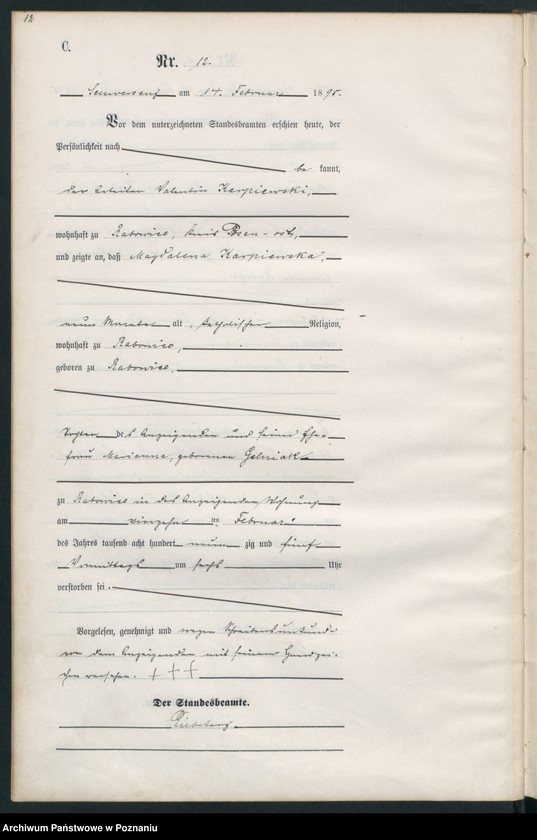 12
C.
Nr. 12.
Schwersenz am 14. Februar 1895.
Vor dem unterzeichneten Standesbeamten erschien heute, der
Persönlichkeit nach
be kannt,
der Arbeiter Valentin Karpiewski,
wohnhaft zu Rabowice, Kreis Posen-ost,
und zeigte an, daß Magdalena Karpiewska,
neun Monate alt, katholischer Religion,
wohnhaft zu Rabowice,
geboren zu Rabowice,
Tochter des Anzeigenden und seiner Ehe-
frau Marianna, geborenen
zu Rabowice in des Anzeigenden Wohnung
am vierzehn ten Februar
des Jahres tausend acht hundert neun zig und fünf
Vormittags um sechs Uhr
verstorben sei.
Vorgelesen, genehmigt und wegen Schreibensunkunde
von dem Anzeigenden mit seinem Handzei-
chen versehen. + + +
Der Standesbeamte.
Archiwum Państwowe w Poznaniu